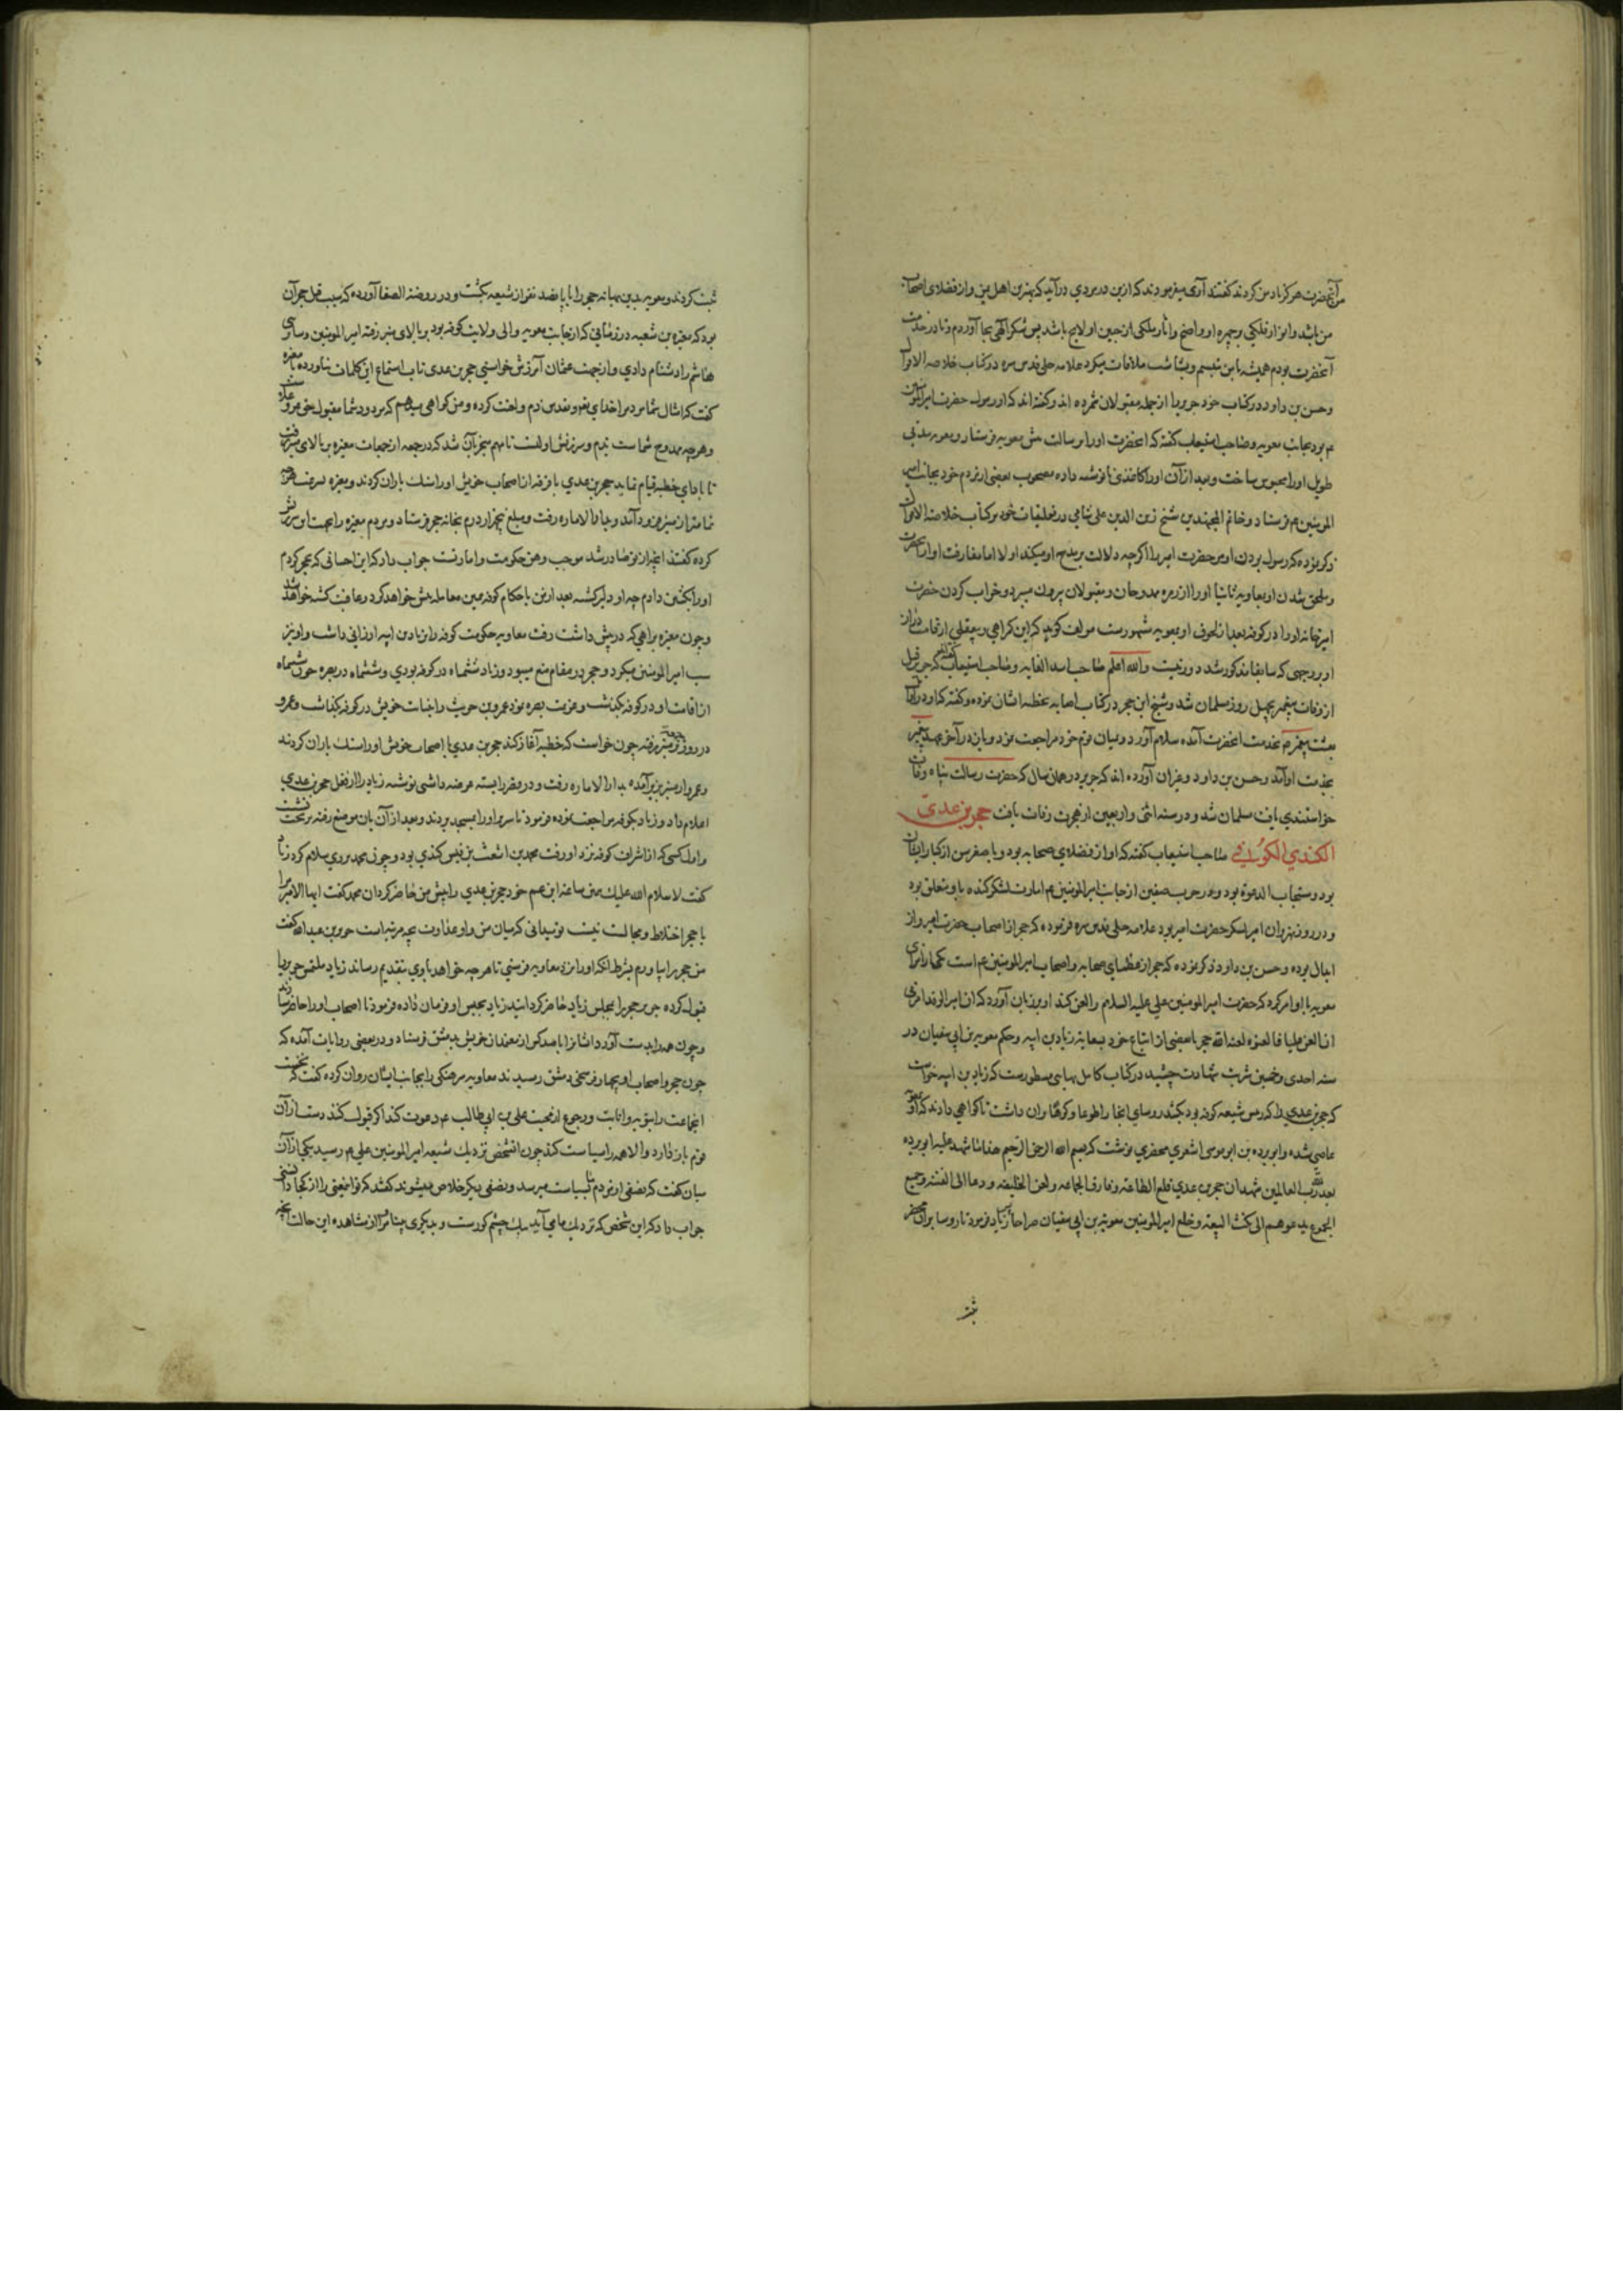 آنحضرت هرگز یاد من کردند گفتند آری میفرمودند که ازین در مردی درآید که بهترین اهل یمن و از فضلای اصحاب
من باشد و انوار ملکی بر چهره او واضح و آثار ملکی از جبین او لایح باشد پس شکر الهی بجا آوردم و تا در خدمت
آنحضرت بودم همیشه با من تبسم و بشاشت ملاقات میکرد علامه حلی قدس سره در کتاب خلاصه الاقوال
و حسن بن داود در کتاب خود جریر را از جمله مقبولان شمرده اند و گفته اند که او رسول حضرت امیرالمؤمنین
عم بود بجانب معویه و صاحب استیعاب گفته که آنحضرت او را برسالت پیش معویه فرستاد و معویه مدتی
طویل او را محبوس ساخت و بعد از آن او را کاغذی نانوشته داده مصحوب بعضی از مردم خود بجانب امیر
المومنین عم فرستاد و خاتم المجتهدین شیخ زین الدین علی شامی در تعلیقات خود بر کتاب خلاصه الاقوال
ذکر نموده که رسول بودن او من حضرت امیر را اگرچه دلالت بر مدح او میکند اولا اما مفارقت او از آنحضرت
و ملحق شدن او بمعاویه ثانیا او را از زمره ممدوحان و مقبولان بیرون میبرد و خراب کردن حضرت
امیر خانه او را در کوفه بعد از لحوق او بمعویه مشهورست مولف گوید که این
او بر وجهی که سابقا مذکور شد دور نیست والله اعلم صاحب اسد الغابه و صاحب استیعاب گفته اند که جریر قبل
از وفات پیغمبر بچهل روز مسلمان شد و شیخ ابن حجر در کتاب اصابه تخطئه ایشان نموده و گفته که او در اوایل
بعثت پیغمبر عم بخدمت آنحضرت آمده سلام آورد و میان قوم خود مراجعت نمود و باز در آخر عهد پیغمبر
بخدمت او آمد و حسن بن داود و غیر آن آورده اند که جریر در همان سال که حضرت رسالت پناه وفات
خواستند یافت مسلمان شد و در سنه اثنی و اربعین از هجرت وفات یافت حجر بن عدی
الکندی الکوفی صاحب استیعاب گفته که او از فضلای صحابه بود و با صغر سن از کبار ایشان
بود و مستجاب الدعوه بود و در حرب صفین از جانب امیرالمومنین عم امارت لشکر کنده باو متعلق بود
و در روز نهروان امیر لشکر حضرت امیر بود علامه حلی قدس سره فرموده که حجر از اصحاب حضرت امیر و از
ابدال بوده و حسن بن داود ذکر نموده که حجر از عظمای صحابه و اصحاب امیرالمومنین عم است یکی از امرای
معویه باو امر کرد که حضرت امیرالمومنین علی علیه السلام را لعن کند او بر زبان آورد که ان امیر الوفد امرنی
ان العن علیا فالعنوه لعنه الله حجر با بعضی از اتباع خود بسعایه زیاد بن ابیه و حکم معویه بن ابی سفیان در
سنه احدی و خمسین شربت شهادت چشید در کتاب کامل بهایی مسطورست که زیاد بن ابیه خواست
که حجر بن عدی را که رئیس شیعه کوفه بود بکشد روسای آنجا را طوعا و کرها بر آن داشت تا گواهی دادند که او بمعویه
عاصی شده و ابو برده بن ابو موسی اشعری محضری نوشت که بسم الله الرحمن الرحیم هذا ما شهد علیه ابو برده
لله رب العالمین شهد ان حجر بن عدی خلع الطاعه و فارق الجماعه و لعن الخلیفه و دعا الی الفتنه و جمع
الجموع یدعوهم الی نکث البیعة و خلع امیر المومنین معویة بن ابی سفیان صراحا زیاد فرمود تا روسا بر آن محضر
ثبت
ثبت کردند و معویه بدین بهانه حجر را با پانصد نفر از شیعه بکشت و در روضه الصفا آورده که سبب قتل حجر آن
بود که مغیره بن شعبه در زمانی که از جانب معویه والی ولایت کوفه بود بر بالای منبر رفته امیر المومنین و سایر بنی
هاشم را دشنام دادی و از جهت عثمان آمرزش خواستی حجر بن عدی تاب استماع این کلمات نیاورده با مغیره
گفت که امثال شما مردم را خدای
و هر چه ممدوح شماست بذم و سرزنش اولیست تا مهم منجر بآن شد که در جمعه از جمعات مغیره بر بالای منبر رفت
تا بادای خطبه قیام نماید حجر بن عدی با فرقه از اصحاب خویش او را سنک باران کردند و مغیره بسرعت هر چه
تمامتر از منبر فرود آمد و بدار الاماره رفت و مبلغ پنج هزار درم بخانه حجر فرستاد و مردم مغیره را بجهت او سرزنش
کرده گفتند اینچه از تو صادر شد موجب وهن حکومت و امارتست جواب داد که این احسانی که بحجر کردم
او را بکشتن دادم چه او دلیر گشته بعد ازین با حکام کوفه همین معامله پیش خواهد کرد و عاقبت کشته خواهد شد
و چون مغیره براهی که در پیش داشت رفت معاویه حکومت کوفه را بزیاد بن ابیه ارزانی داشت و او نیز
سب امیر المومنین میکرد و حجر در مقام منع میبود و زیاد ششماه در کوفه بودی و ششماه در بصره چون ششماه
از اقامت او در کوفه بگذشت و عزیمت بصره نمود عمرو بن حریث را بنیابت خویش در کوفه بگذاشت و عمرو
در روز جمعه بر منبر رفته چون خواست که خطبه آغاز کند حجر بن عدی با اصحاب خویش او را سنک باران کردند
و عمرو از منبر بزیر آمده بدار الاماره رفت و در قصر را بسته عرضه داشتی نوشته زیاد را از فعل حجر بن عدی
اعلام داد و زیاد بکوفه مراجعت نموده فرمود تا سریر او را بمسجد بردند و بعد از آن بان موضع رفته بر تخت نشست
و اول کسی که از اشراف کوفه نزد او رفت محمد بن اشعث بن قیس کندی بود و چون محمد بر وی سلام کرد زیاد
گفت لا سلام الله علیک همین ساعه ابن عم خود حجر بن عدی را پیش من حاضر کردان محمد گفت ایها الامیر مرا
با حجر اختلاط و مجالست نیست تو میدانی که میان من و او عداوت بچه مرتبه است جریر بن عبدالله گفت
من حجر را بیاورم بشرط آنکه او را نزد معاویه فرستی تا هر چه خواهد با وی بتقدیم رساند زیاد ملتمس جریر را
قبول کرده جریر حجر را بمجلس زیاد حاضر گردانید زیاد بحبس او فرمان داده فرمود تا اصحاب او را حاضر سازند
و چون همه را بدست آورد ایشان را با صد کس از معتمدان خویش بدمشق فرستاد و در بعضی روایات آمده که
چون حجر و اصحاب او بچهار فرسخی دمشق رسیدند معاویه سرهنکی را بجانب ایشان روان کرده گفت که نخست
آنجماعت را بتوبه و انابت و رجوع از محبت علی بن ابی طالب عم دعوت کند اگر قبول کنند دست از آن
قوم باز دارد و الا همه را سیاست کند چون آنشخص نزدیک شیعه امیر المومنین علی عم رسید یکی از آن
میان گفت که نصفی از مردم ما بسیاست میرسد و نصفی دیگر خلاص میشوند گفتند که تو این معنی را از کجا دانستی
جواب داد که این شخص که نزدیک ما می آید بیک چشم کورست و بدیگری بینا مرا از مشاهده این حالت